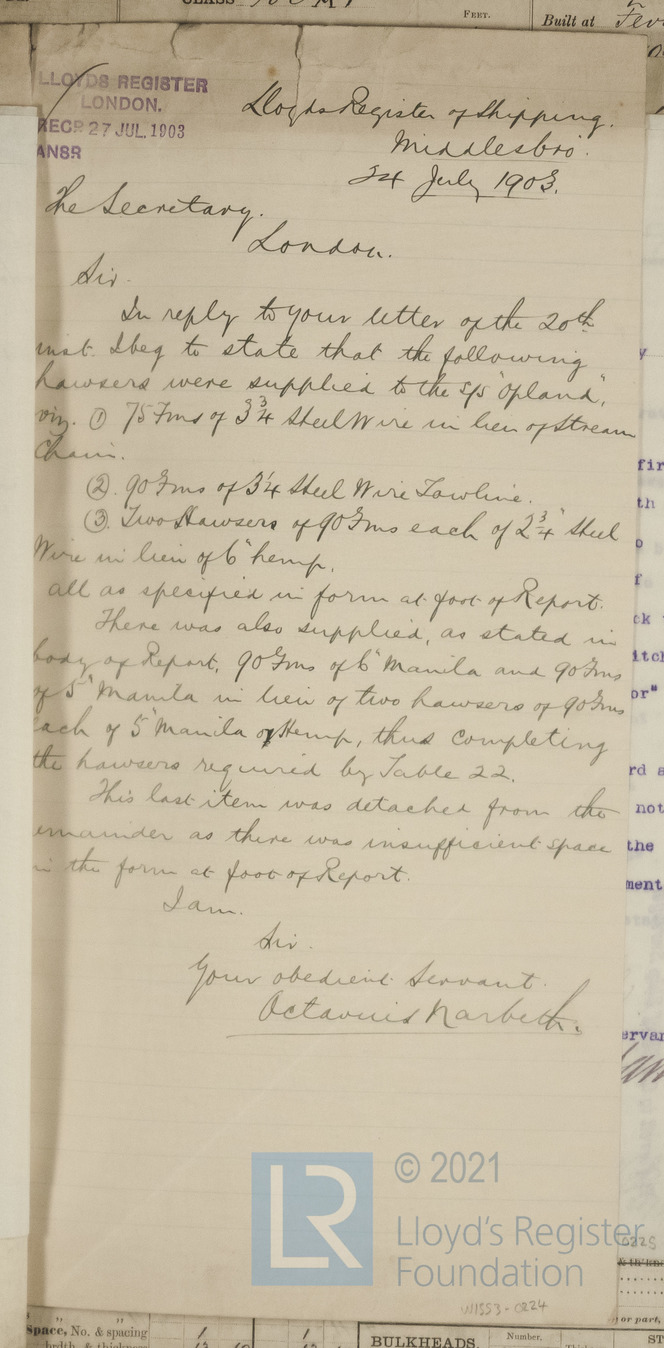 Built at
FEET.
LLOYDS REGISTER
LONDON.
RECD 27 JUL. 1903
ANSR
Lloyds Register of Shipping.
Middlesbro'.
24 July 1903.
The Secretary.
London.
Sir.
In reply to your letter of the 20th
inst. I beg to state that the following
hawsers were supplied to the S/S "Opland",
viz. ① 75 Fms of 3 3/4 Steel Wire in lieu of Stream
Chain.
②. 90 Fms of 3 1/4 Steel Wire Towline.
③. Two Hawsers of 90 Fms each of 2 3/4" Steel
Wire in lieu of 6" hemp.
all as specified in form at foot of Report.
There was also supplied, as stated in
body of Report, 90 Fms of 6" Manila and 90 Fms
of 5" Manila in lieu of two hawsers of 90 Fms
each of 5" Manila or Hemp, thus completing
the hawsers required by Table 22.
This last item was detached from the
emainder as there was insufficient space
in the form at foot of Report.
I am.
Sir.
Your obedient Servant.
Octavius Narbeth.
© 2021
Lloyd's Register
Foundation
W1553-0224
Space, No. & spacing
BULKHEADS.
Number.